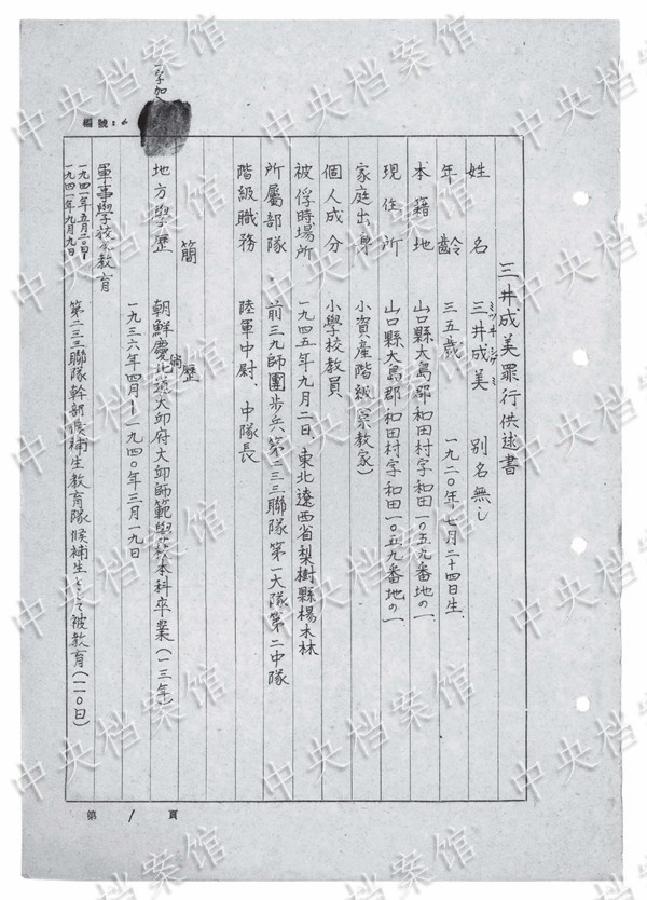 編號: 6
一字加
三井成美罪行供述書
姓名 三井成美 別名無し
ミツヰ ミ
年齡 三五歳 一九二〇年七月二十四日生
本籍地 山口縣大島郡和田村字和田一〇五九番地の一
現住所 山口縣大島郡和田村字和田一〇五九番地の一
家庭出身 小資產階級(宗教家)
個人成分 小學校教員
被俘時場所 一九四五年九月二日、東北遼西省梨樹縣楊木林
所屬部隊 前三九師團步兵第二三三聯隊第一大隊第二中隊
階級職務 陸軍中尉、中隊長
簡 歷
地方學歷 朝鮮慶北道大邱府大邱師範學校本科卒業(一三年)
一九三六年四月—一九四〇年三月一九日
軍事學校分教育
一九四一年五月二〇日
一九四一年九月九日 第二三三聯隊幹部候補生教育隊候補生として被教育(一一〇日)
第 1 頁
中央档案馆